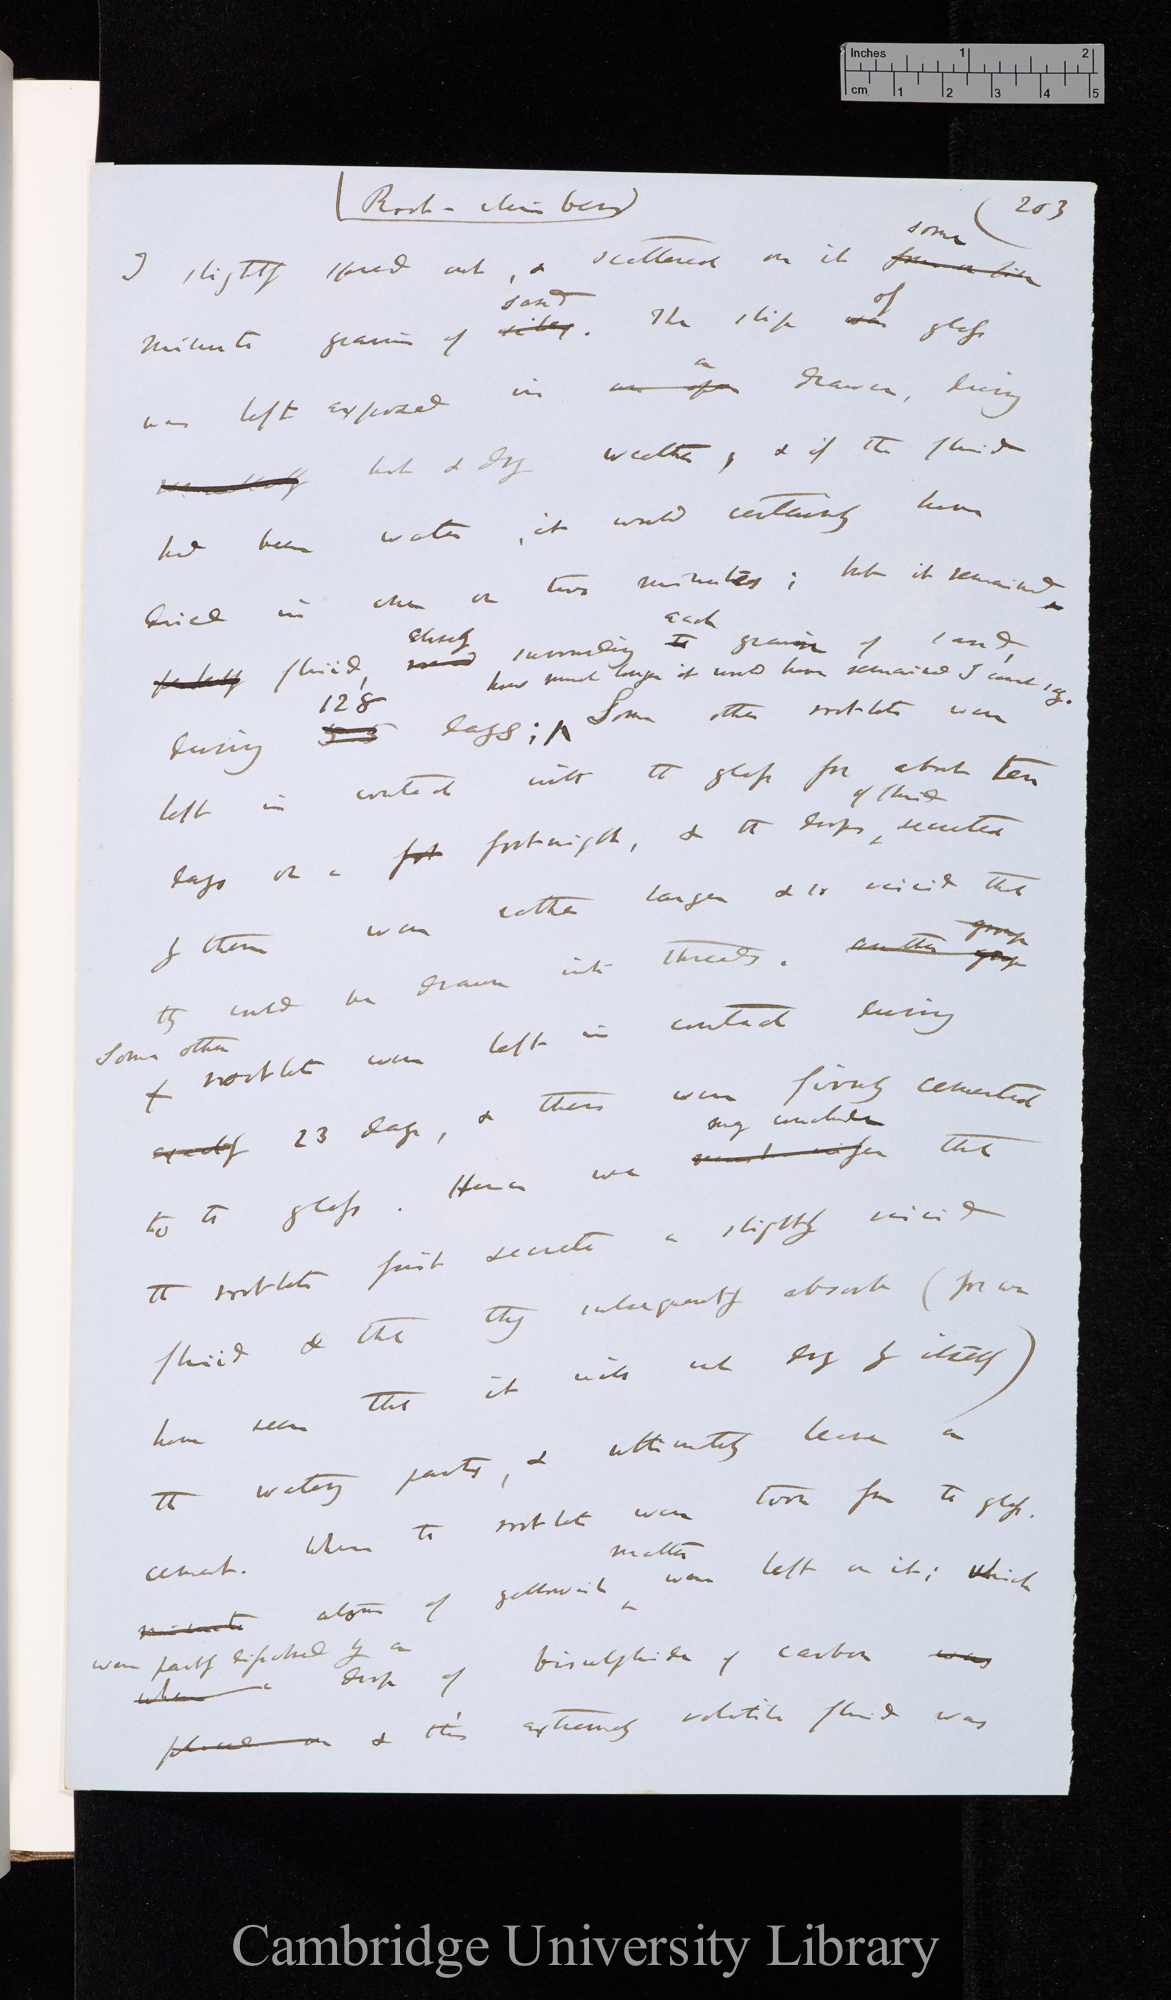 Inches 1 2
cm 1 2 3 4 5
(Root-climbers) (203
some
I slightly spread out, & scattered on it
sand of
minute grains of silex. The slip was glass
a
was left exposed in an open drawer, during
hot & dry weather, & if the fluid
had been water, it would certainly have
dried in one or two minutes; but it remained
closely each
perfectly fluid, surrounding grain of sand,
how much longer it would have remained I cannot say.
128
during days; Some other rootlets were
left in contact with the glass for about ten
of fluid
days or a fort fortnight, & the drops secreted
by them were rather larger & so viscid that
group
they could be drawn into threads. Another group
Some other
rootlets were left in contact during
exactly 23 days, & these were firmly cemented
may conclude
to the glass. Hence we must infer that
the rootlets first secrete a slightly viscid
fluid & that they subsequently absorb (for we
have seen that it will not dry by itself)
the watery parts, & ultimately leave a
cement. When the rootlets were torn from the glass.
matter
minute atoms of yellowish were left on it; which
were partly dissolved by a
when a drop of bisulphide of carbon was
placed on & this extremely volatile fluid was
Cambridge University Library